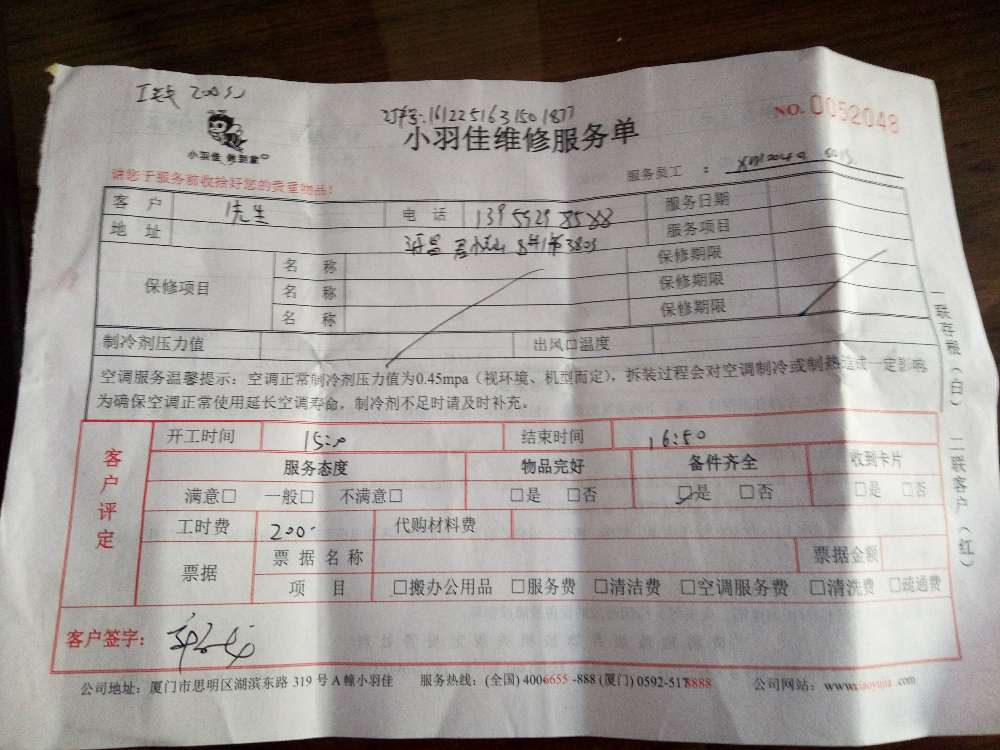 订单号:1612251631501877
NO.0052048
小羽佳维修服务单
小羽佳 帮到家
请您于服务前收拾好您的贵重物品!
服务员工 :
客 户 先生 电 话 服务日期
地 址 服务项目
保修项目 名 称 保修期限
名 称 保修期限
名 称 保修期限
制冷剂压力值 出风口温度
空调服务温馨提示:空调正常制冷剂压力值为0.45mpa(视环境、机型而定),拆装过程会对空调制冷或制热造成一定影响
为确保空调正常使用延长空调寿命,制冷剂不足时请及时补充。
一联存根(白) 二联客户(红)
客户评定
开工时间 结束时间 16:50
服务态度 物品完好 备件齐全 收到卡片
满意□ 一般□ 不满意□ □是 □否 □是 □否 □是 □否
工时费 200 代购材料费
票据 票 据 名 称 票据金额
项 目 □搬办公用品 □服务费 □清洁费 □空调服务费 □清洗费 □疏通费
客户签字:
公司地址:厦门市思明区湖滨东路 319 号 A 幢小羽佳 服务热线:(全国) 4006655 -888 (厦门) 0592-5178888 公司网站:www.xiaoyujia .com